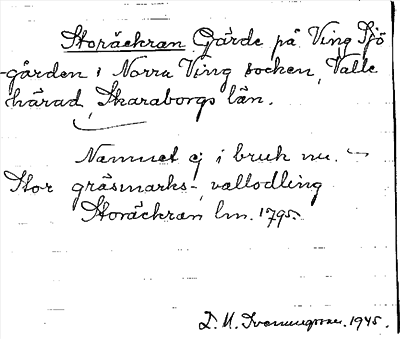 Storäckran Gärde på Ving Sjö
-gården i Norra Ving socken, Valle
härad, Skaraborgs län.
Namnet ej i bruk nu.
Stor gräsmarks-, vallodling
Storäckran lm. 1795.
D. U. 1945.